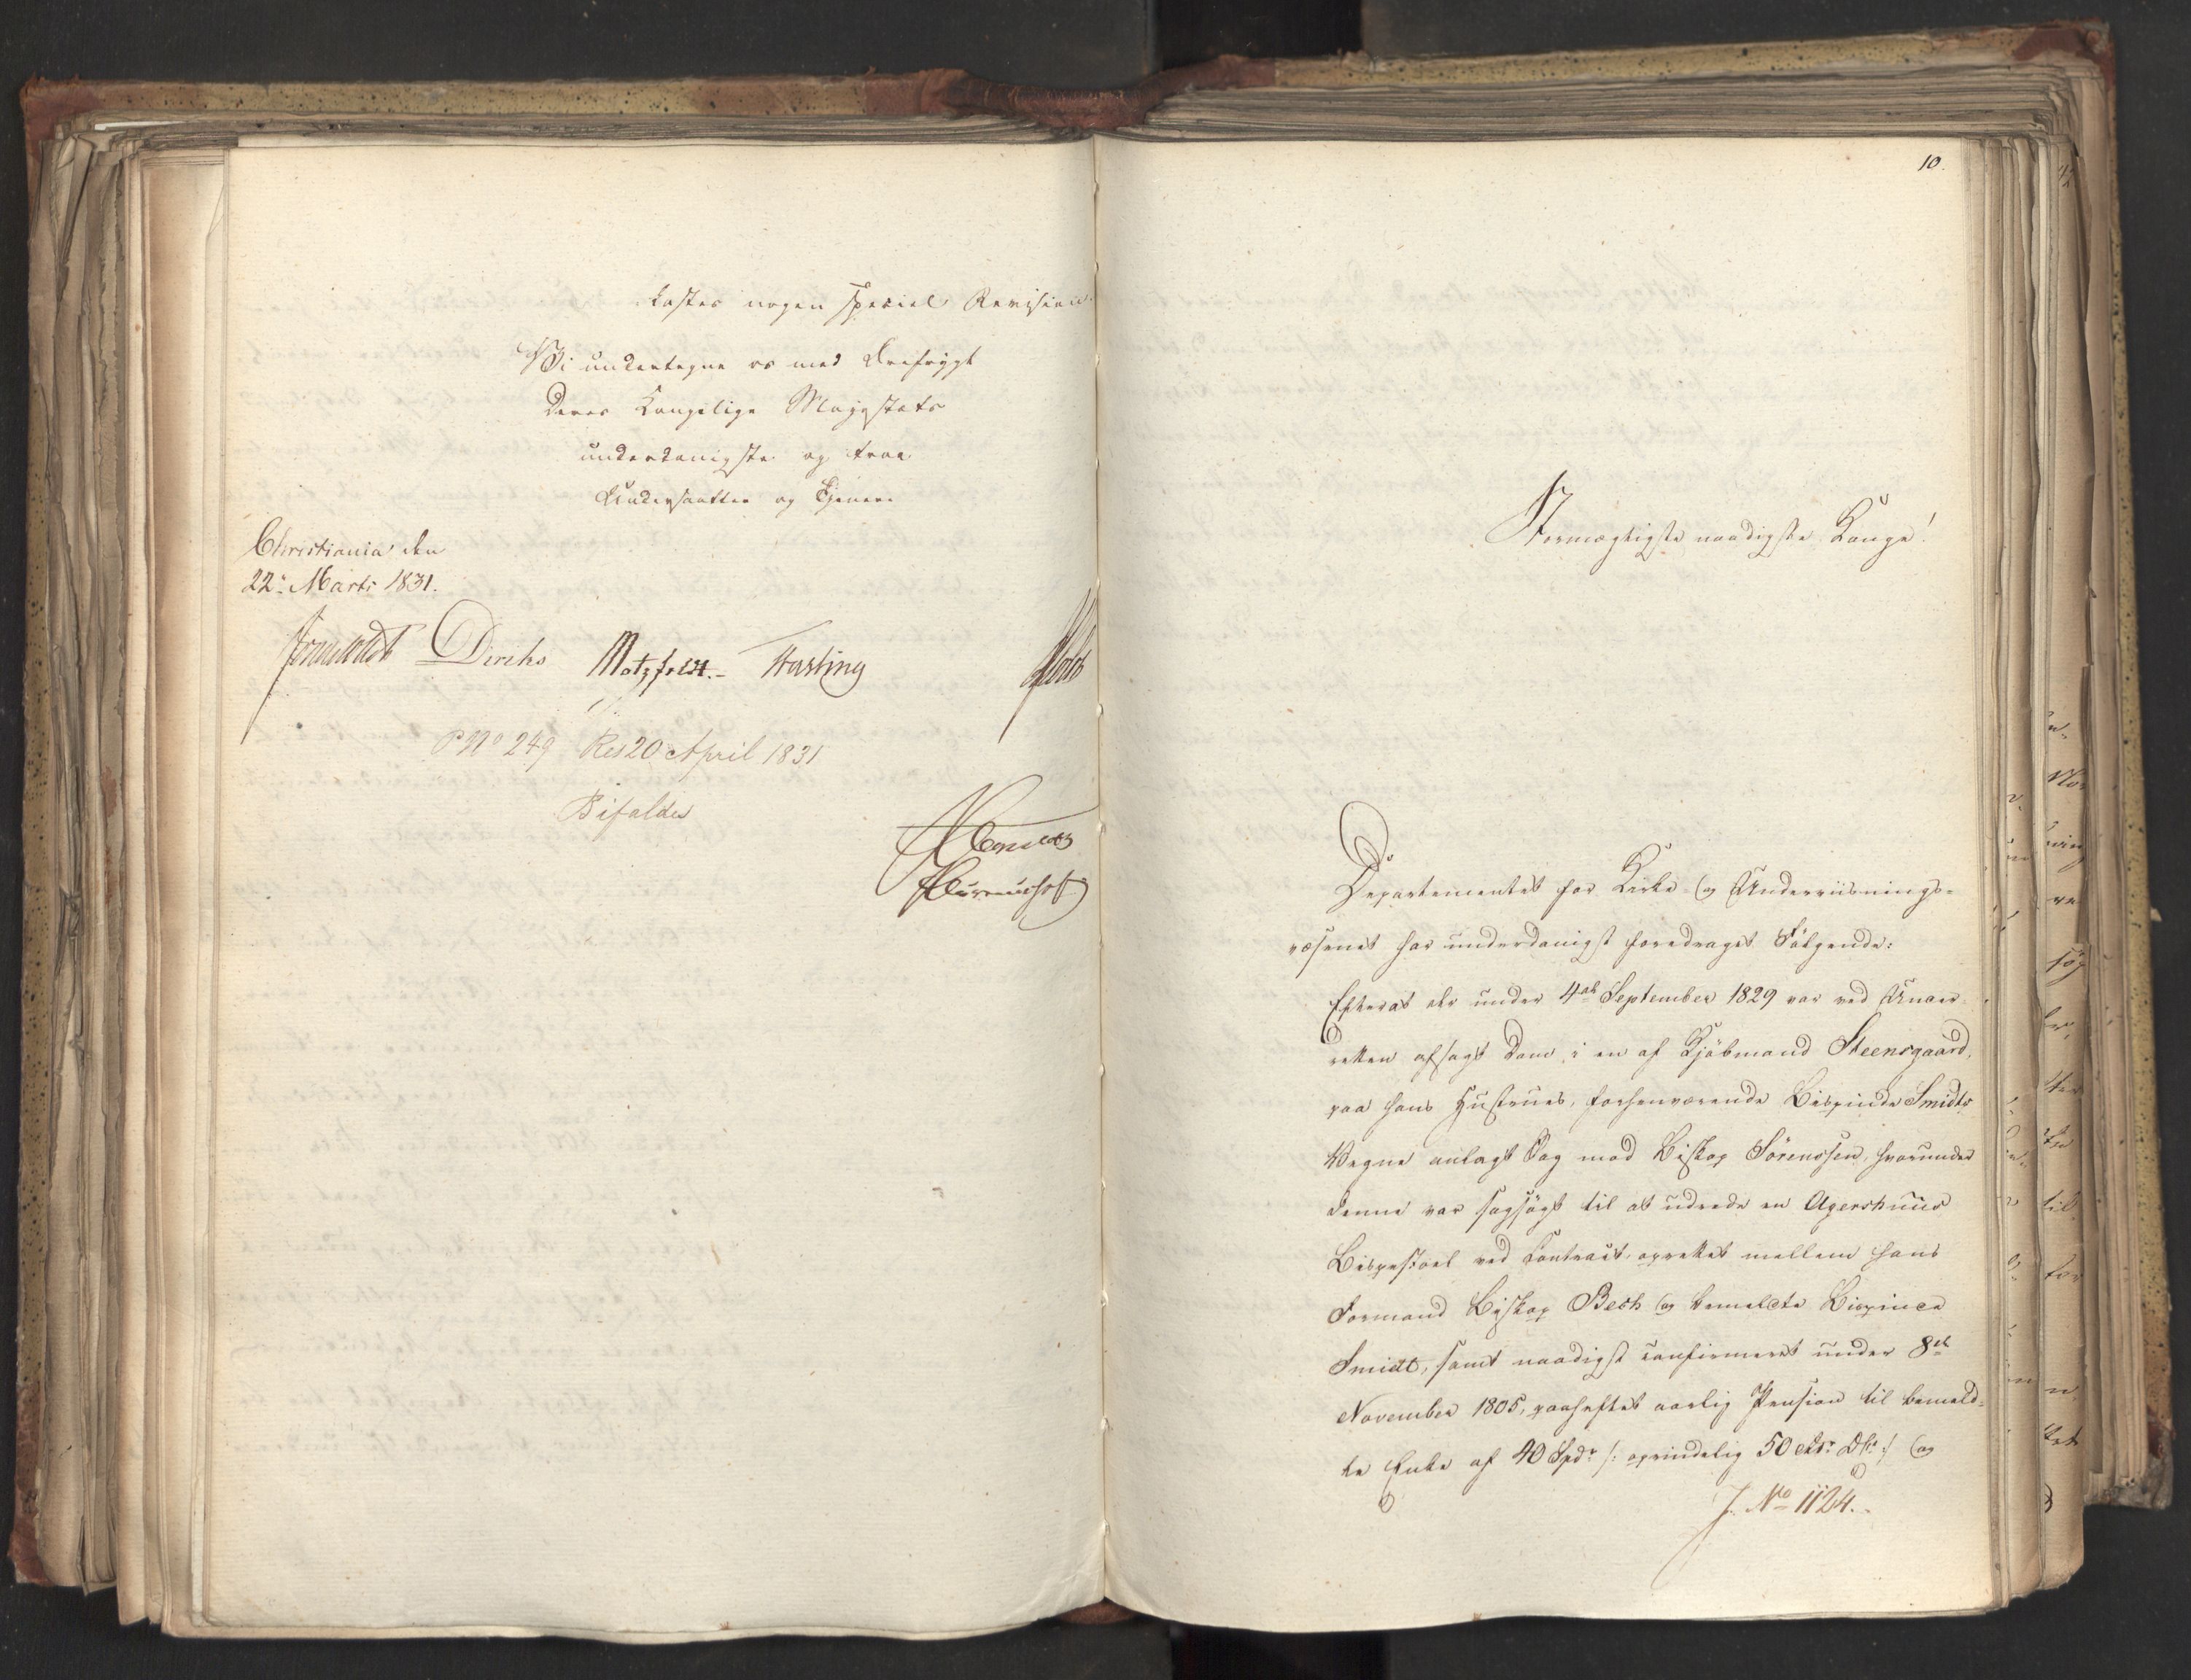 kastes nogen speciel Revision.
Vi undertegne os med Ærefrygt
Deres Kongelige Majestæts
underdanigste og troe
Undersaatter og Tjenere
Christiania den
22de Marts 1831.
Diriks Motzfeldt. Fasting Holst
P No 249 Res 20 April 1831
Bifaldes
10.
Stormægtigste naadigste Konge!
Departementet for Kirke- og Underviisnings-
væsenet har underdanigst foredraget Følgende:
Efterat der under 4de September 1829 var ved Under-
retten afsagt Dom i en af Kjøbmand Steensgaard,
paa hans Hustrues, forhenværende Bispinde Smidts
Vegne anlagt Sag mod Biskop Sörenssen, hvorunder
denne var sagsøgt til at udrede en Agershuus
Bispestoel ved Contract, oprettet mellem hans
Formand Biskop Bech og bemeldte Bispinde
Smidt, samt naadigst confirmeret under 8de
November 1805, paaheftet aarlig Pension til bemeld-
te Enke af 40 Spdr /: oprindelig 50 Rdr. D.C. :/ og
J. No 1124.